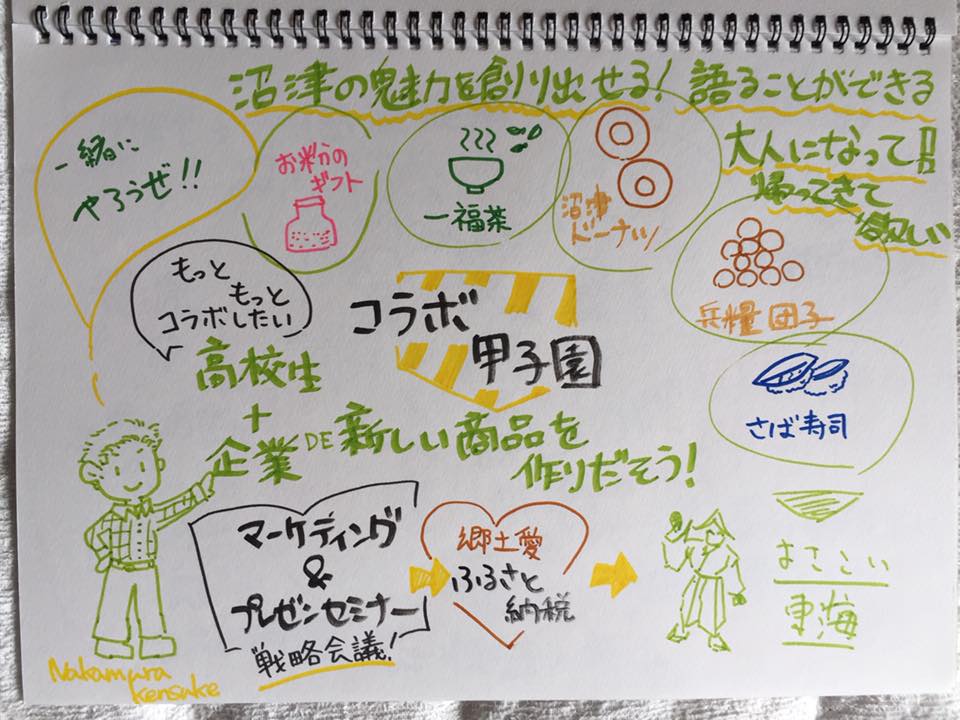 沼津の魅力を創り出せる！ 語ることができる
大人になって！！
帰ってきて
欲しい
一緒に
やろうぜ!!
お米粉の
ギフト
一福茶
沼津
ドーナツ
兵糧団子
さば寿司
もっと
もっと
コラボしたい
コラボ
甲子園
高校生
+
企業DE新しい商品を
作りだそう！
マーケティング
&
プレゼンセミナー
戦略会議！
郷土愛
ふるさと
納税
よさこい
東海
Nakamura
Kensuke